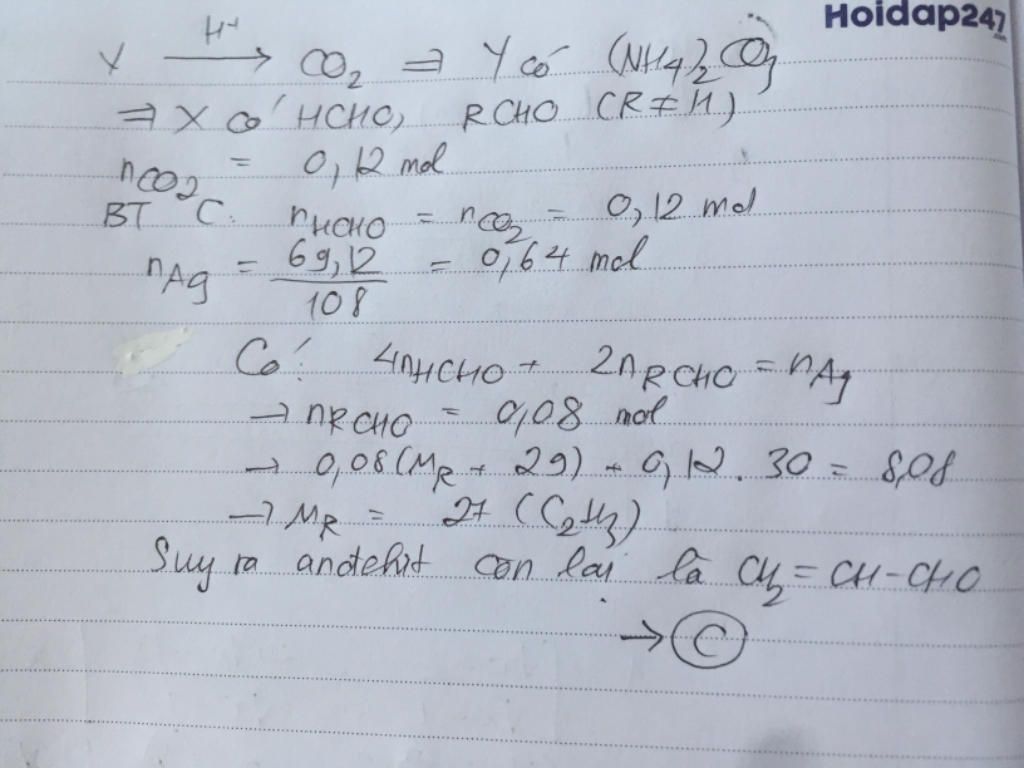 Hoidap247
.com
Y —H⁺→ CO₂ ⇒ Y có (NH₄)₂CO₃
⇒ X có HCHO, RCHO (R ≠ H)
nCO₂ = 0,12 mol
BT C: nHCHO = nCO₂ = 0,12 mol
nAg = 69,12/108 = 0,64 mol
Có: 4nHCHO + 2nRCHO = nAg
→ nRCHO = 0,08 mol
→ 0,08(MR + 29) + 0,12 . 30 = 8,08
→ MR = 27 (C₂H₃)
Suy ra anđehit còn lại là CH₂=CH-CHO
→ C